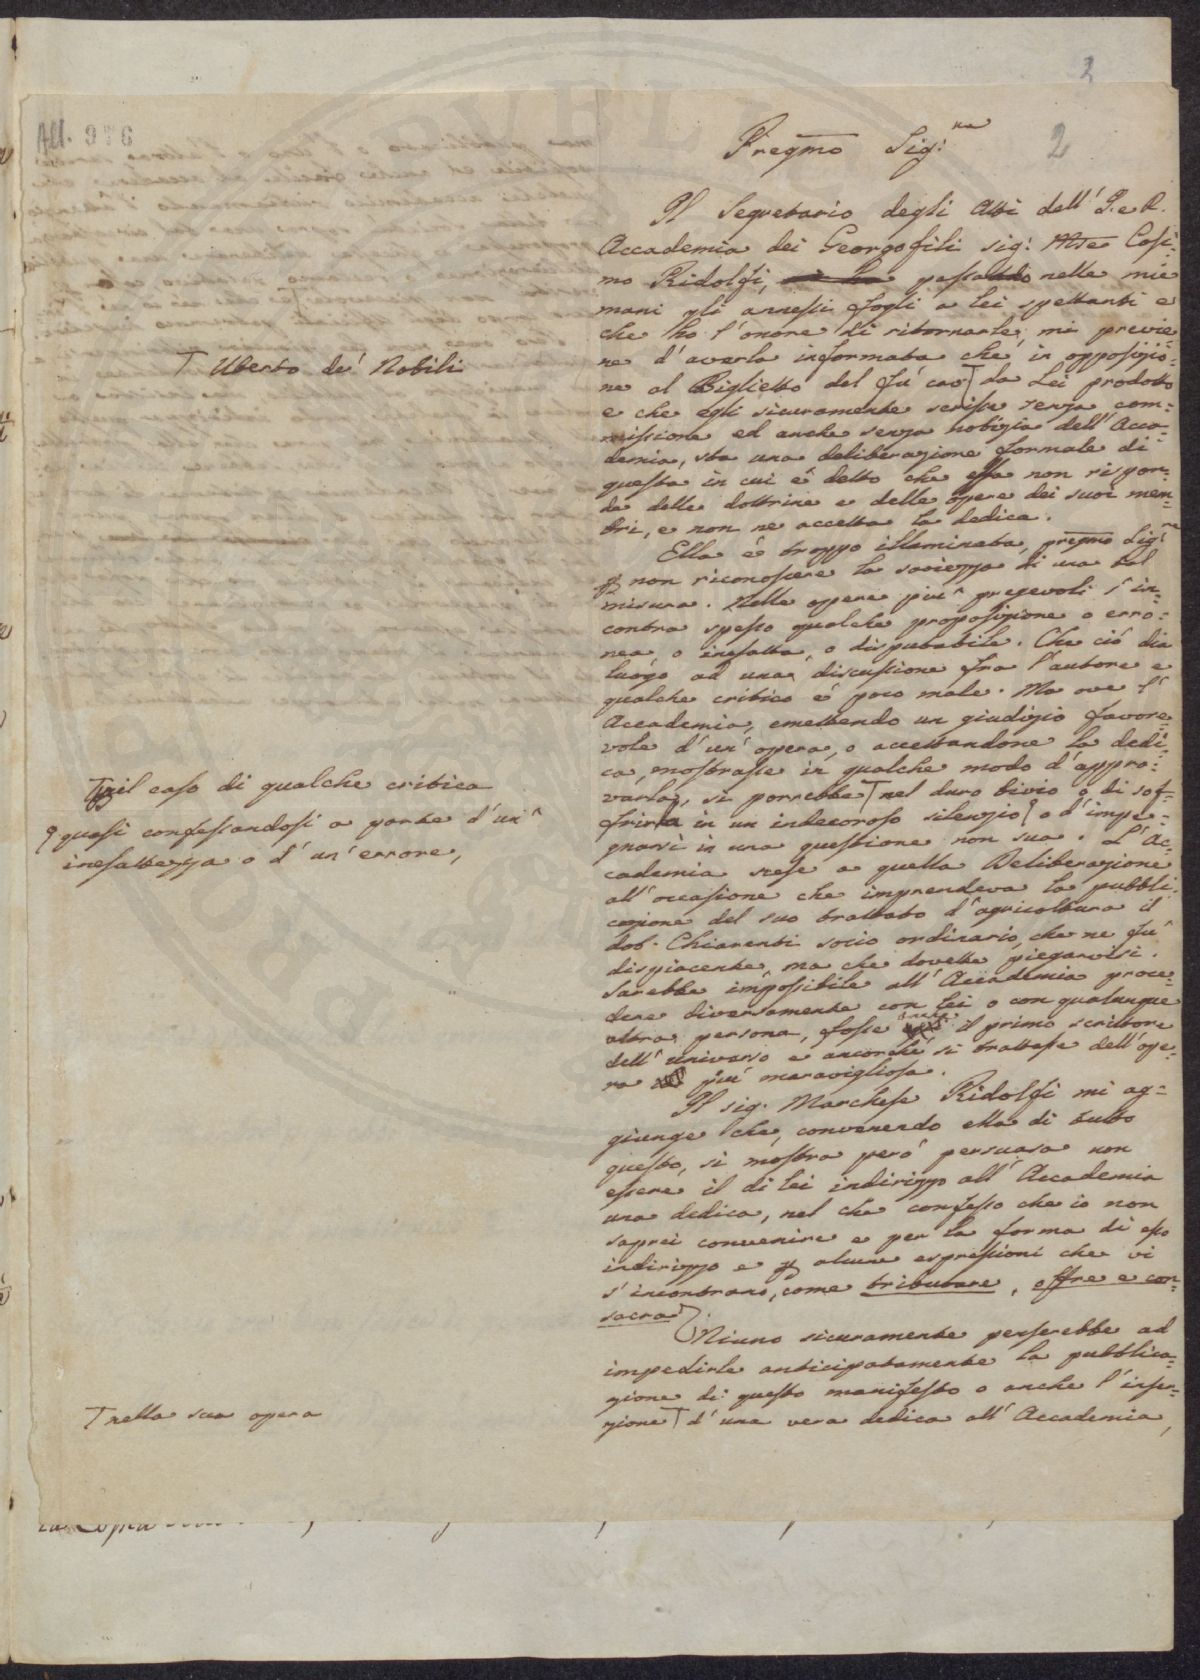 All. 976
2
2
Pregmo Sig:re
Il Segretario degli Atti dell' I. e R.
Accademia dei Georgofili sig: Mse Cosi=
mo Ridolfi, passando nelle mie
mani gli annessi fogli a Lei spettanti e
che ho l'onore di ritornarle, mi previe=
ne d'averla informata che in opposizio=
T Uberto de' Nobili
ne al Biglietto del fu cav T da Lei prodotto
e che egli sicuramente scrisse senza com=
missione ed anche senza notizia dell'Acca=
demia, sta una deliberazione formale di
questa in cui è detto che essa non rispon=
de delle dottrine e delle opere dei suoi mem=
bri, e non ne accetta la dedica.
Ella è troppo illuminata, pregmo Sig:re
p non riconoscere la saviezza di una tal
misura. Nelle opere più pregevoli s'in=
contra spesso qualche proposizione o erro=
nea o inesatta, o disputabile. Che ciò dia
luogo ad una discussione fra l'autore e
qualche critico è poco male. Ma ove l'
Accademia, emettendo un giudizio favore=
vole d'un'opera, o accettandone la dedi=
ca, mostrasse in qualche modo d'appro=
T nil caso di qualche critica
varla, si porrebbe T nel duro bivio o di sof=
frirla in un indecoroso silenzio 9 o d'impe=
9 quasi confessandosi a parte d'un'
inesattezza o d'un'errore,
gnarsi in una questione non sua. L'Ac=
cademia scese a quella Deliberazione
all'occasione che imprendeva la pubbli=
cazione del suo trattato d'agricoltura il
dot. Chiarenti socio ordinario, che ne fu
dispiacente, ma che dovette piegarvisi.
Sarebbe impossibile all'Accademia proce=
dere diversamente con Lei o con qualunque
altra persona, fosse anche il primo scrittore
dell'universo e ancorchè si trattasse dell'ope=
ra più maravigliosa.
Il sig. Marchese Ridolfi mi ag=
giunge che, convenendo ella di tutto
questo, si mostra però persuasa non
essere il di Lei indirizzo all'Accademia
una dedica, nel che confesso che io non
saprei convenire e per la forma di esso
indirizzo e p alcune espressioni che vi
s'incontrano, come tributare, offre e con=
sacra.
Niuno sicuramente penserebbe ad
impedirle anticipatamente la pubblica=
zione di questo manifesto o anche l'inser=
T nella sua opera
zione T d'una vera dedica all'Accademia,